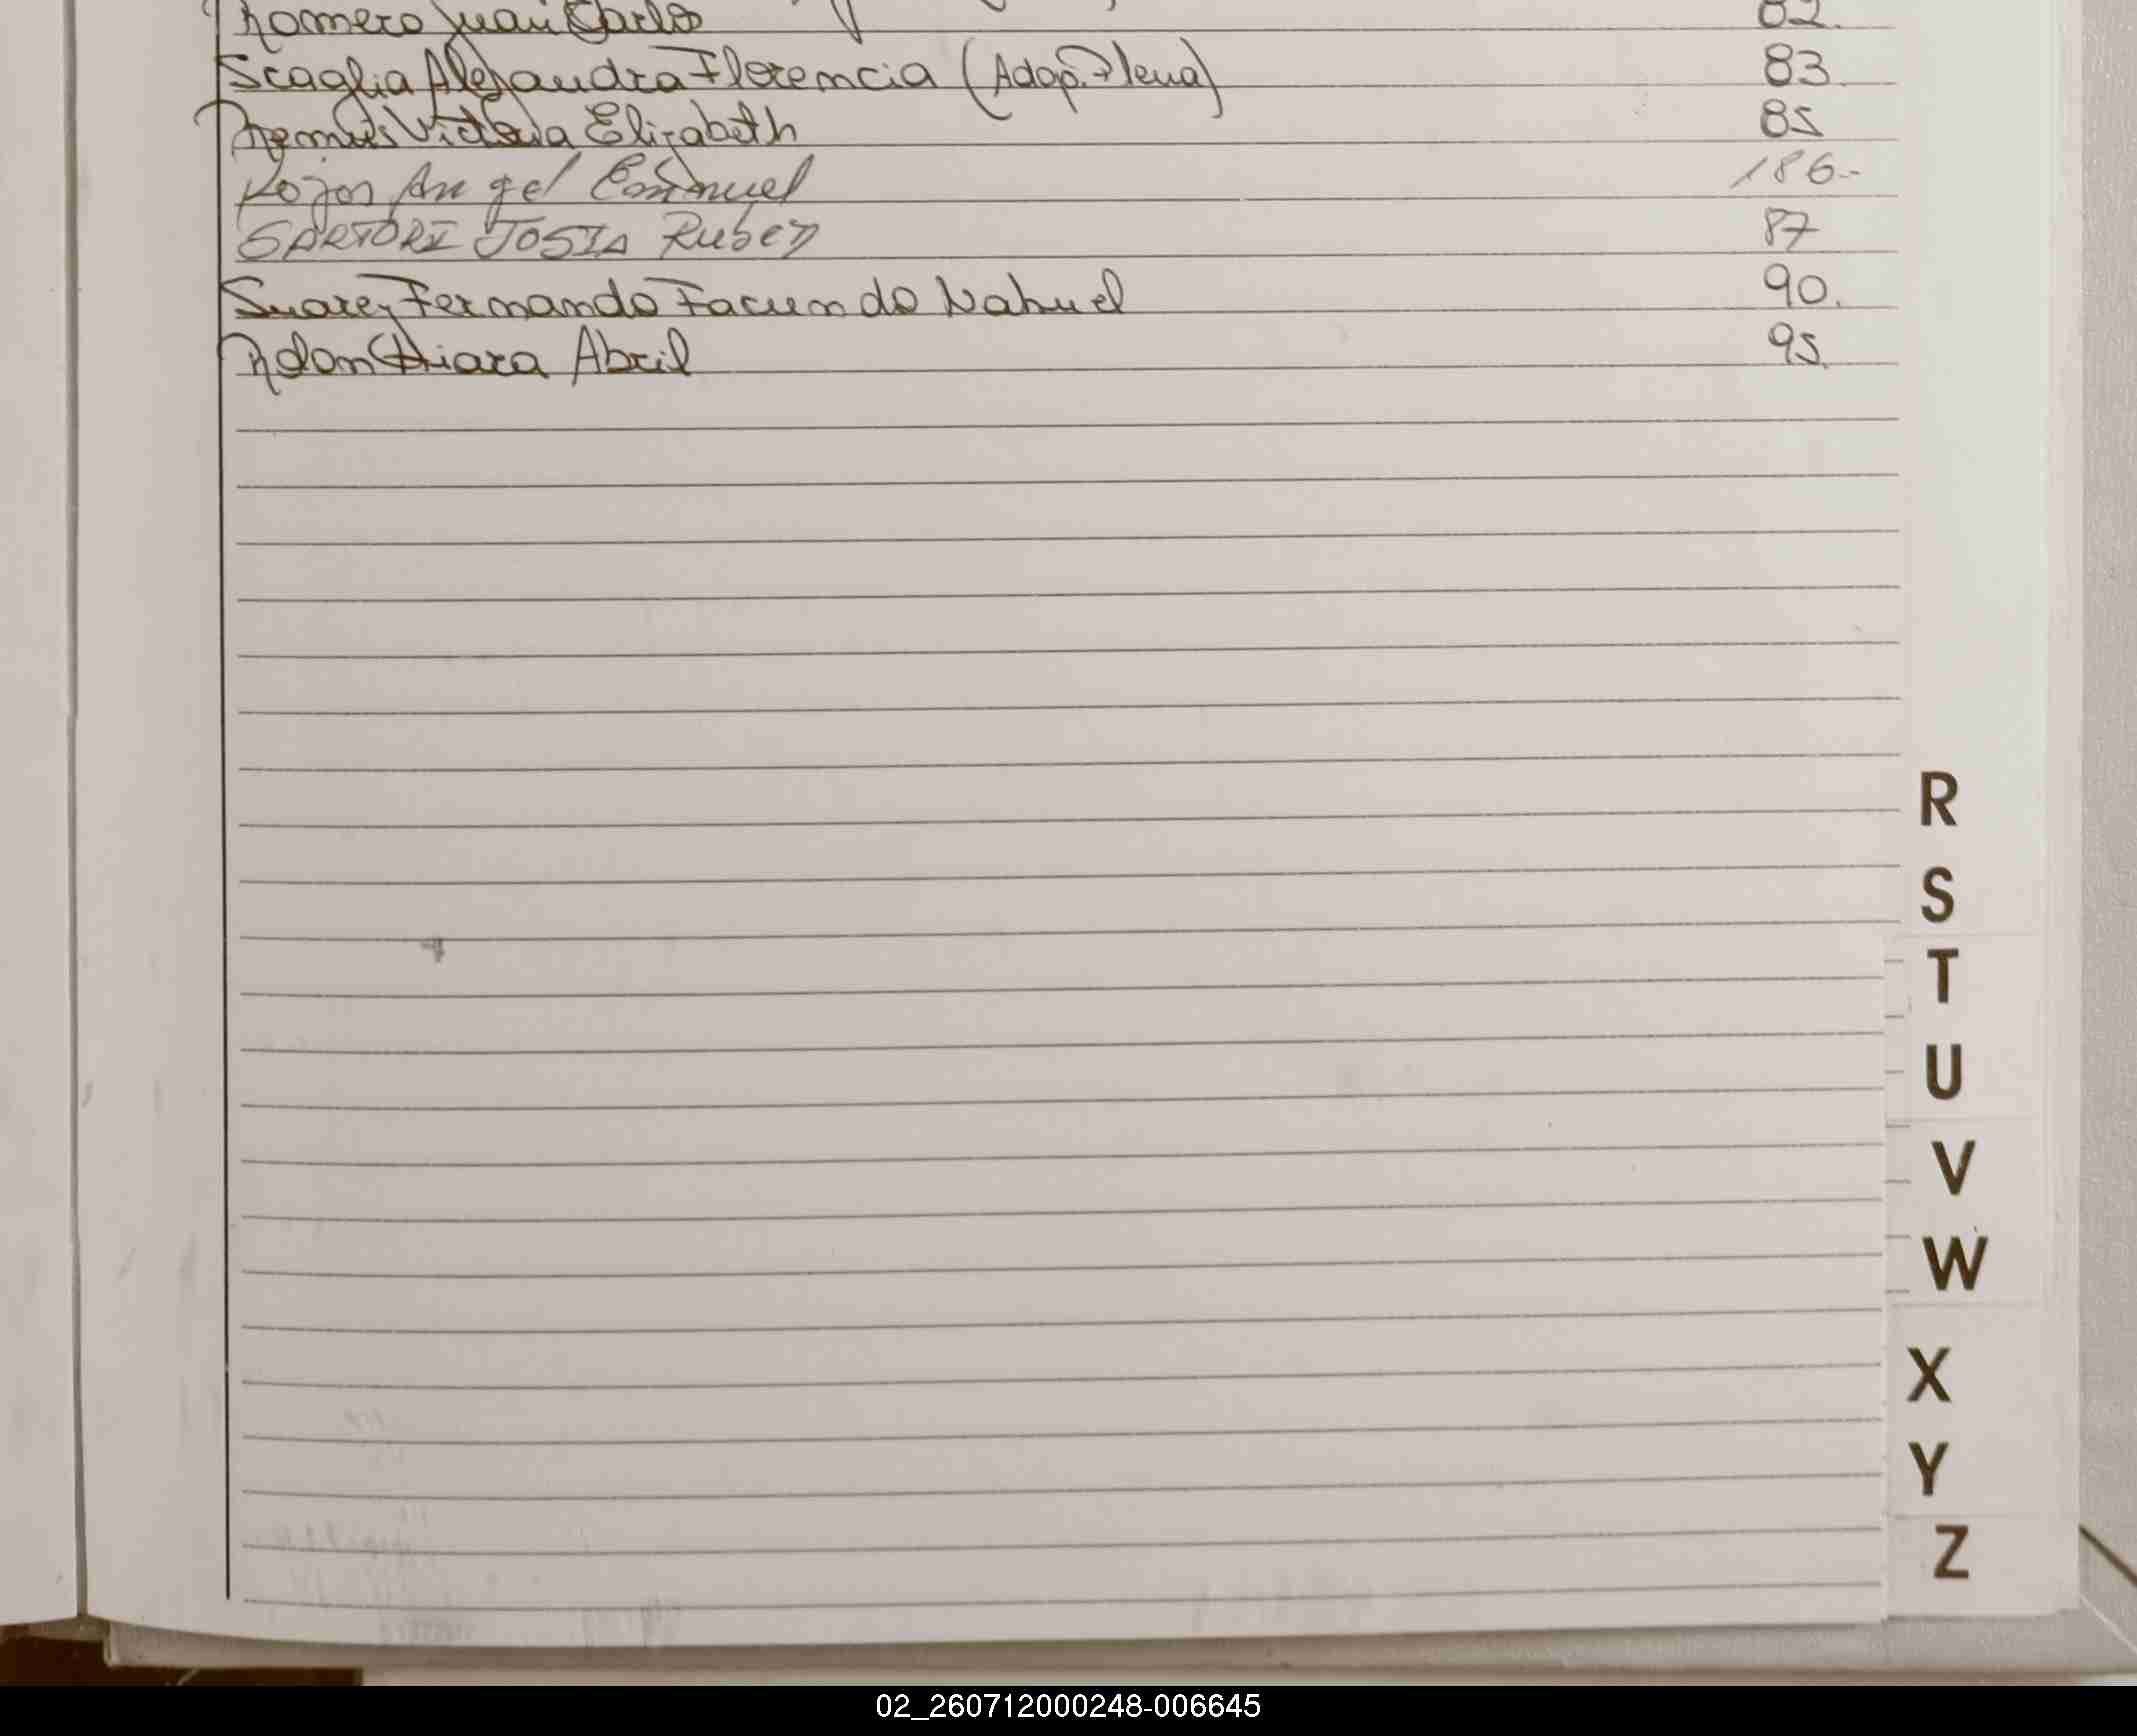 Romero Juan Carlos 82.
Scaglia Alejandra Florencia (Adop. Plena) 83
Victoria Elizabeth 85
Rojas Angel Emanuel 186.-
SARTORI JOSIA Ruben 87
Suarez Fernando Facundo Nahuel 90.
Rolon Chiara Abril 95.
R
S
T
U
V
W
X
Y
Z
02_260712000248-006645